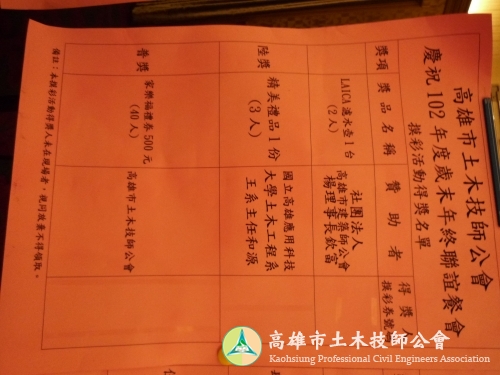 高雄市土木技師公會
慶祝102年度歲末年終聯誼餐會
摸彩活動得獎名單
獎項
獎品名稱
贊助者
得獎人
摸彩券號
LAICA濾水壺1台
(2人)
社團法人
高雄市建築師公會
楊理事長欽富
陸獎
精美禮品1份
(3人)
國立高雄應用科技
大學土木工程系
王系主任和源
普獎
家樂福禮券500元
(40人)
高雄市土木技師公會
備註：本摸彩活動得獎人未在現場者，視同放棄不得領取。
高雄市土木技師公會
Kaohsiung Professional Civil Engineers Association